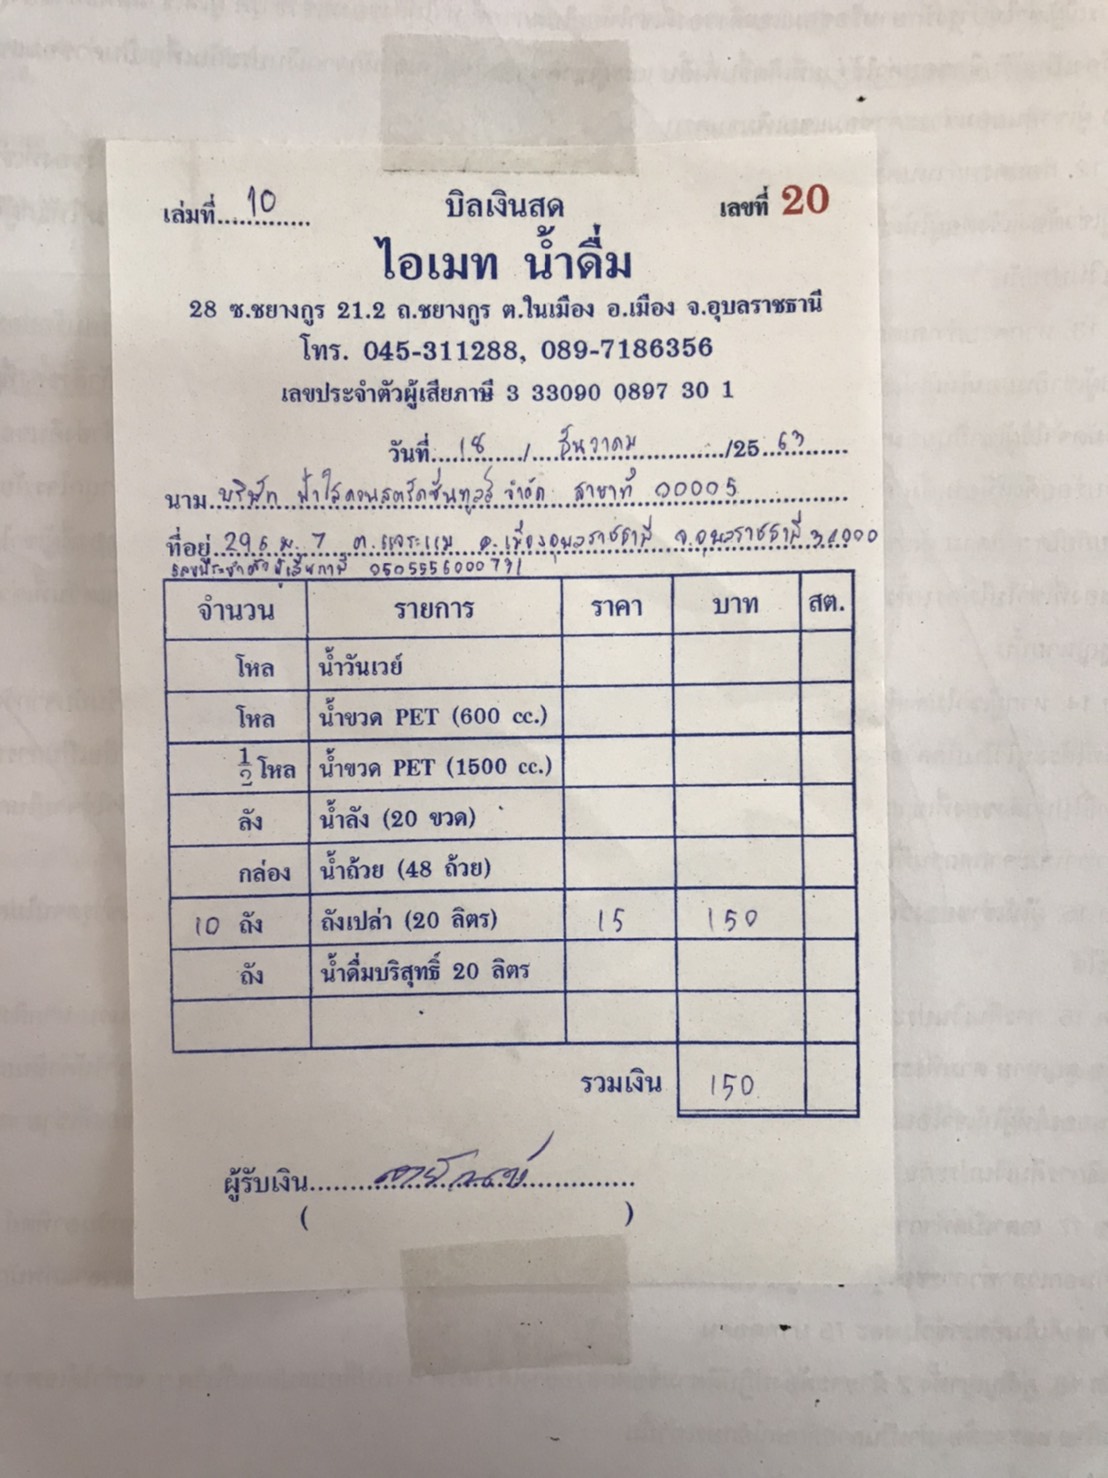 เล่มที่ 10 บิลเงินสด เลขที่ 20
ไอเมท น้ำดื่ม
28 ซ.ชยางกูร 21.2 ถ.ชยางกูร ต.ในเมือง อ.เมือง จ.อุบลราชธานี
โทร. 045-311288, 089-7186356
เลขประจำตัวผู้เสียภาษี 3 33090 0897 30 1
วันที่ 18 / ธันวาคม /25 63
นาม บริษัท ฟ้าใสคอนสตรัคชั่นทูลส์ จำกัด สาขาที่ 00005
ที่อยู่ 296 ม. 7 ต.แจระแม อ.เมืองอุบลราชธานี จ.อุบลราชธานี 34000
เลขประจำตัวผู้เสียภาษี 0505556000731
จำนวน รายการ ราคา บาท สต.
โหล น้ำวันเวย์
โหล น้ำขวด PET (600 cc.)
1/2 โหล น้ำขวด PET (1500 cc.)
ลัง น้ำลัง (20 ขวด)
กล่อง น้ำถ้วย (48 ถ้วย)
10 ถัง ถังเปล่า (20 ลิตร) 15 150
ถัง น้ำดื่มบริสุทธิ์ 20 ลิตร
รวมเงิน 150
ผู้รับเงิน
( )